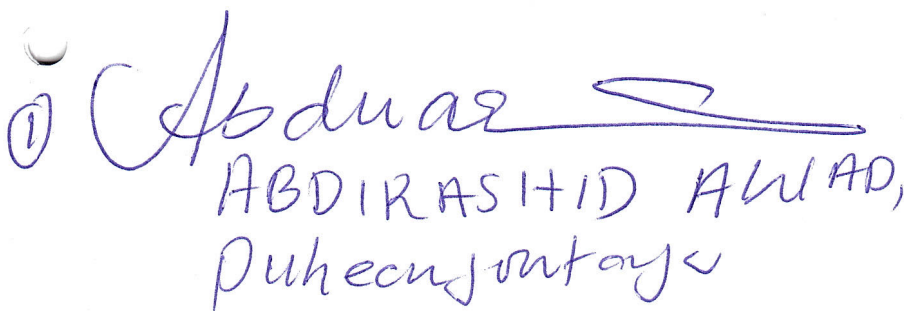 ①
ABDIRASHID AWAD,
Puheenjohtaja